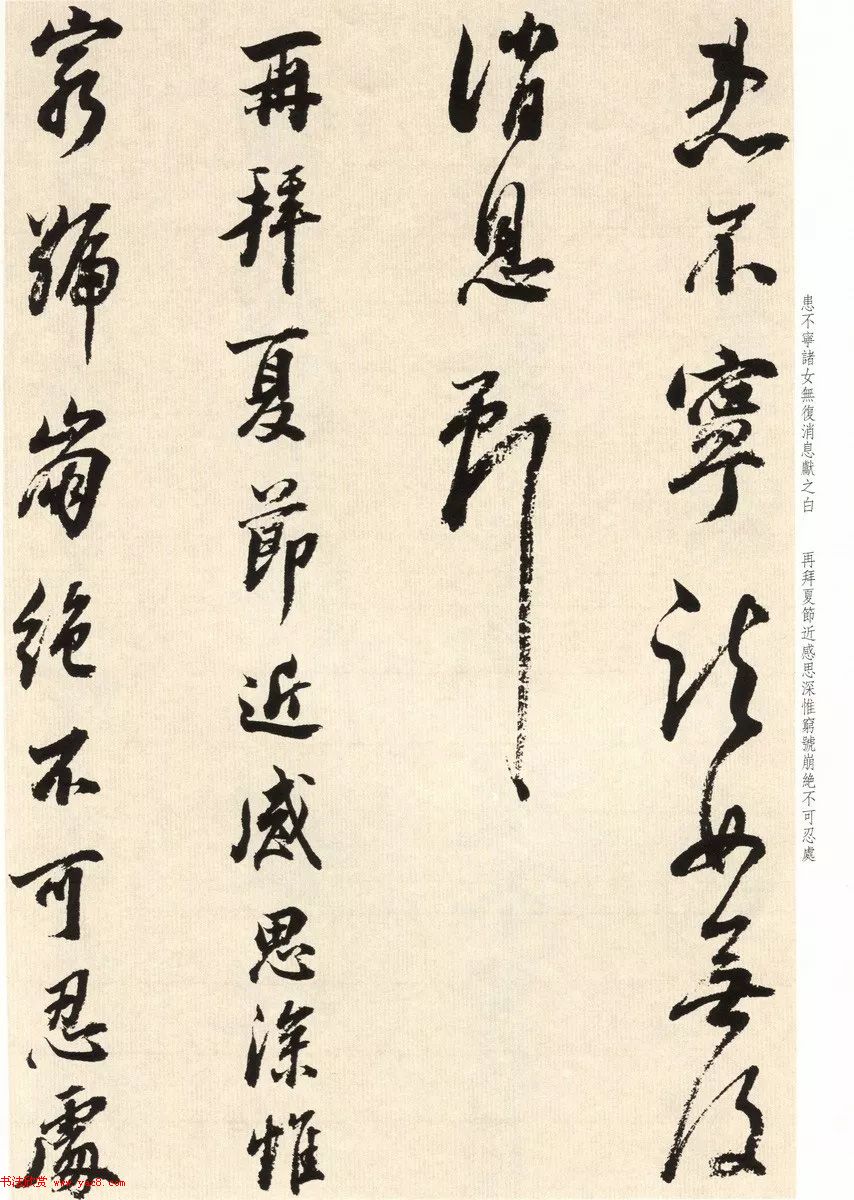 患不寧諸女無復消息獻之白　再拜夏節近感思深惟窮號崩絶不可忍處
患不寧諸女無復
消息
再拜夏節近感思深惟
窮號崩絶不可忍處
书法欣赏 www.yac8.com